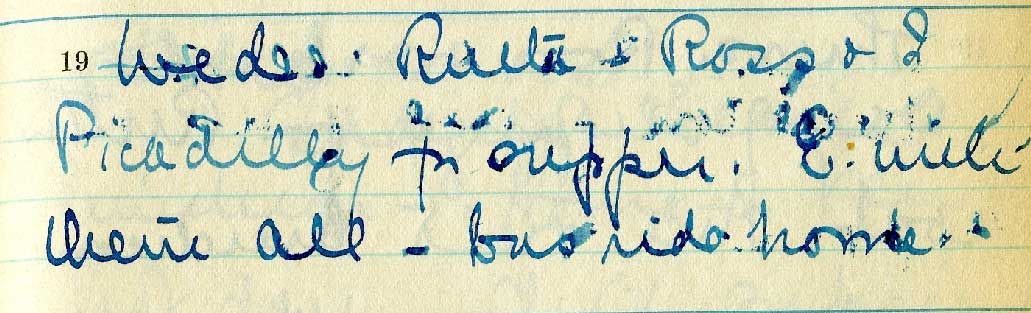 19 Wedes. Ruth & Ross & I
Picadilly for supper. E. with
them all - bus ride home.